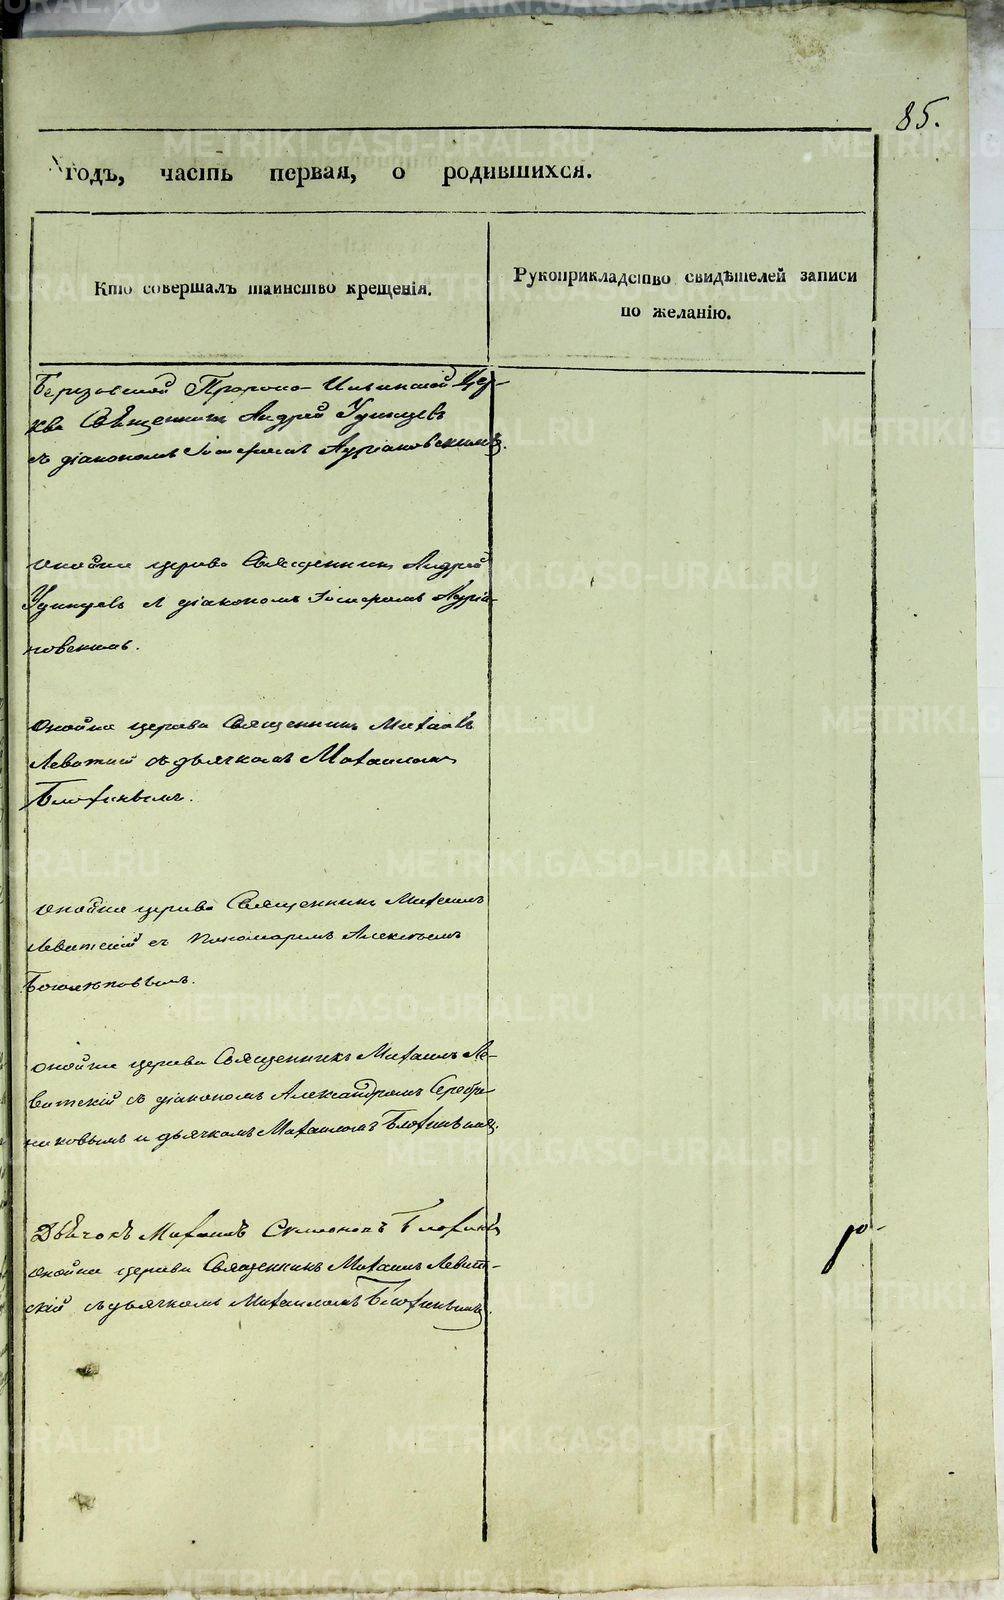 85.
годъ, часть первая, о родившихся.
Кто совершалъ таинство крещенія.
Рукоприкладство свидѣтелей записи
по желанію.
Березовской Пророко-Ильинской Цер-
кви Священникъ Андрей Удинцевъ
съ діакономъ
оной же церкви Священникъ Андрей
Удинцевъ съ діакономъ
оной же церкви Священникъ Михаилъ
Левитскій съ дьячкомъ Михаиломъ
Блохинымъ.
оной же церкви Священникъ Михаилъ
Левитскій съ пономаремъ Алексѣемъ
Боголѣповымъ.
оной же церкви Священникъ Михаилъ Ле-
витскій съ діакономъ Александромъ Серебре
никовымъ и дьячкомъ Михаиломъ Блохинымъ.
Дьячокъ Михаилъ Симоновъ Блохинъ
оной же церкви Священникъ Михаилъ Левит-
скій съ дьячкомъ Михаиломъ Блохинымъ.
METRIKI.GASO-URAL.RU